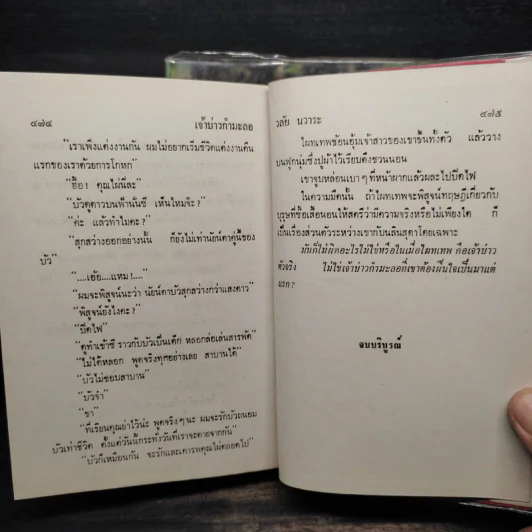 ๔๗๔
เจ้าบ่าวกำมะลอ
"เราเพิ่งแต่งงานกัน ผมไม่อยากเริ่มชีวิตแต่งงานคืน
แรกของเราด้วยการโกหก"
"อื้อ! คุณไผ่นี่ละ"
"บัวดูดาวบนฟ้านั่นซี เห็นไหมจ๊ะ?"
"ค่ะ แล้วทำไมคะ?"
"สุกสว่างออกอย่างนั้น ก็ยังไม่เท่านัยน์ตาคู่นี้ของ
บัว"
"....เอ้อ....แหม!...."
"ผมจะพิสูจน์นะว่า นัยน์ตาบัวสุกสว่างกว่าแสงดาว"
"พิสูจน์ยังไงคะ?"
"ปิดไฟ"
"ดูทำเข้าซี ราวกับบัวเป็นเด็ก หลอกล่อเล่นสารพัด"
"ไม่ได้หลอก พูดจริงทุกอย่างเลย สาบานได้"
"บัวไม่ชอบสาบาน"
"บัวจ๋า"
"ขา"
"ที่เรียนคุณย่าไว้น่ะ พูดจริงๆ นะ ผมจะรักบัวถนอม
บัวเท่าชีวิต ตั้งแต่วันนี้กระทั่งวันที่เราจะตายจากกัน"
"บัวก็เหมือนกัน จะรักและเคารพคุณไผ่ตลอดไป"
วลัย นวาระ
๔๗๕
ไผทเทพช้อนอุ้มเจ้าสาวของเขาขึ้นทั้งตัว แล้ววาง
บนฟูกนุ่มซึ่งปูผ้าไว้เรียบตึงชวนนอน
เขาจูบหล่อนเบาๆ ที่หน้าผากแล้วผละไปปิดไฟ
ในความมืดนั้น ถ้าไผทเทพจะพิสูจน์ทฤษฎีเกี่ยวกับ
บุรุษที่ชื่อเสื้อนอนให้สตรีว่ามีความจริงหรือไม่เพียงใด ก็
เป็นเรื่องส่วนตัวระหว่างเขากับบัวโดยเฉพาะ
มันก็ไม่ผิดอะไรไม่ใช่หรือในเมื่อไผทเทพ คือเจ้าบ่าว
ตัวจริง ไม่ใช่เจ้าบ่าวกำมะลอที่เขาต้องฝืนใจเป็นมาแต่
แรก?
จบบริบูรณ์